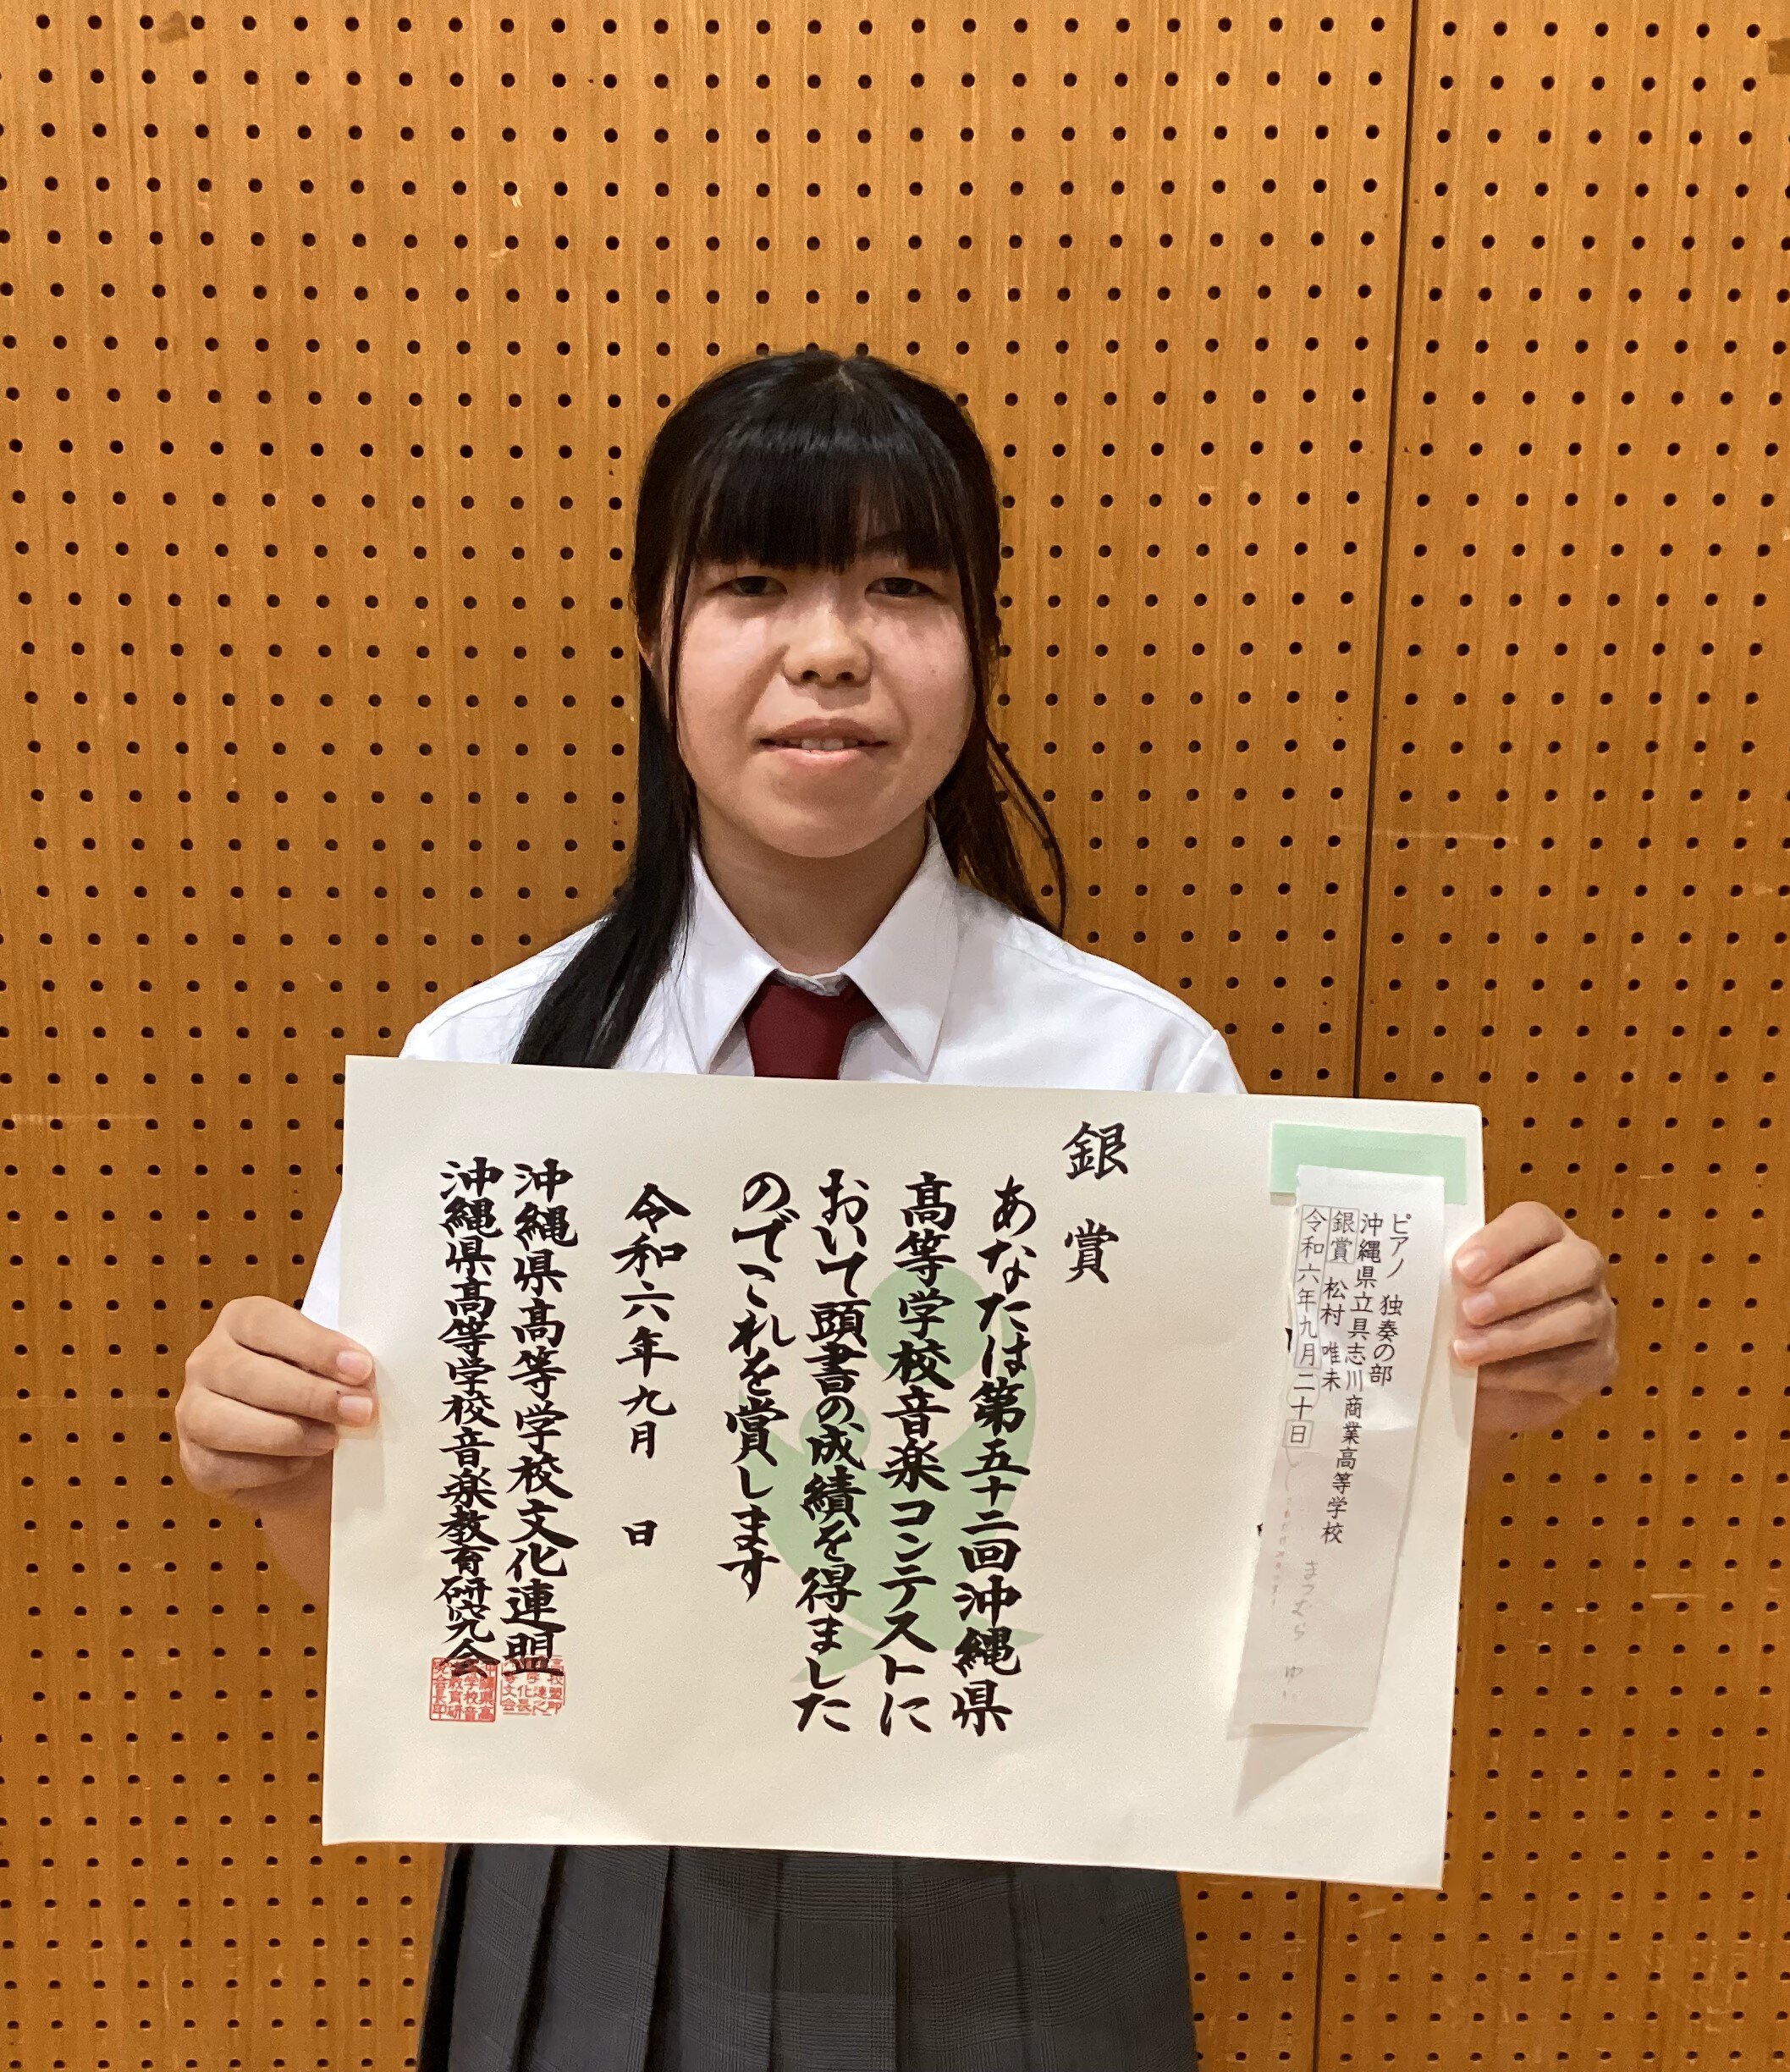 ピアノ 独奏の部
沖縄県立具志川商業高等学校
銀賞 松村 唯未
令和六年九月二十日
まつむら ゆ
銀賞
あなたは第五十二回沖縄県
高等学校音楽コンテストに
おいて頭書の成績を得ました
のでこれを賞します
令和六年九月 日
沖縄県高等学校文化連盟
沖縄県高等学校音楽教育研究会